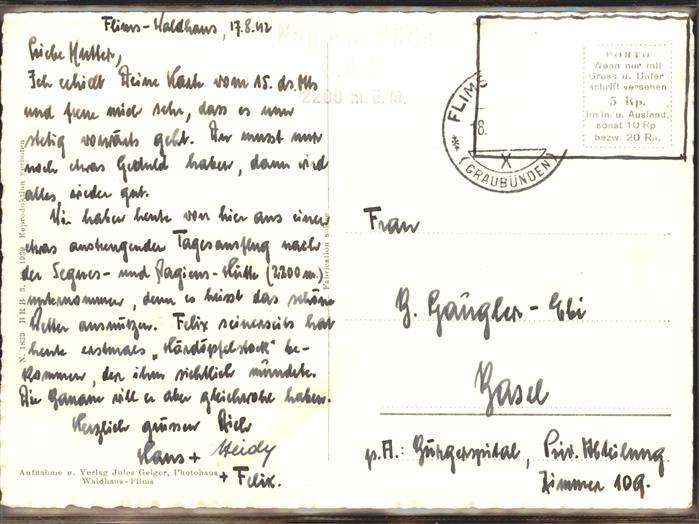 Flims-Waldhaus, 17.8.42
Liebe Mutter,
Ich erhielt Deine Karte vom 15. ds. Mts
und freue mich sehr, dass es nun
stetig vorwärts geht. Du musst nur
noch etwas Geduld haben, dann wird
alles wieder gut.
Wir haben heute von hier aus einen
etwas anstrengenden Tagesausflug nach
der Segnes- und Nagiens-Hütte (2200 m.)
unternommen, denn es heisst das schöne
Wetter ausnützen. Felix seinerseits hat
heute erstmals "Härdöpfelstock" be-
kommen, der ihm sichtlich mündete.
Die Banane will er aber gleichwohl haben.
Herzlich grüssen Dich
Hans + Heidy
+ Felix.
Aufnahme u. Verlag Jules Geiger, Photohaus
Waldhaus-Flims
N. 1833 HRB 3. 1939 Reproduktion verboten
Fabrication suisse
2200 m. ü. M.
PORTO
Wenn nur mit
Gruss u. Unter
schrift versehen
5 Rp.
im In- u. Ausland,
sonst 10 Rp
bezw. 20 Rp.
FLIMS
18.
X
(GRAUBÜNDEN)
Frau
G. Gängler-Ebi
Basel
p.A.: Bürgerspital, Priv. Abteilung
Zimmer 109.